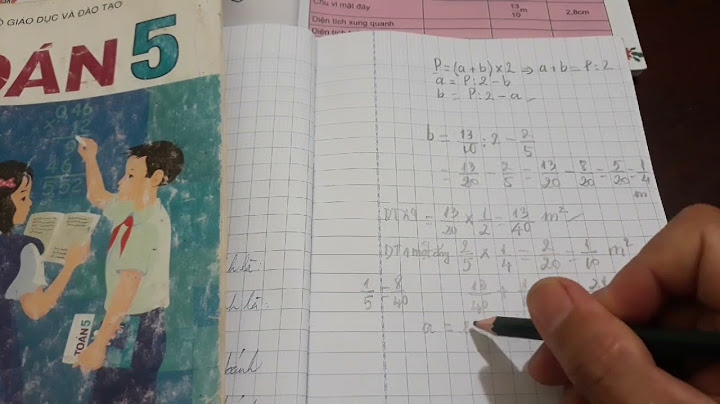 Ộ GIÁO DỤC VÀ ĐÀO TẠO
OÁN 5
0,46
5,52
TOÁN 5
Chu vi mặt đáy
13/10 m
2,8cm
Diện tích xung quanh
Diện tích
P = (a + b) × 2 ⇒ a + b = P : 2
a = P : 2 - b
b = P : 2 - a
b = 13/10 : 2 - 2/5
= 13/20 - 2/5 = 13/20 - 8/20 = 5/20 = 1/4 m
DTXQ = 13/20 × 1/2 = 13/40 m²
DT 1 một đáy 2/5 × 1/4 = 2/20 = 1/10 m²
1/5 = 8/40
a =
bánh